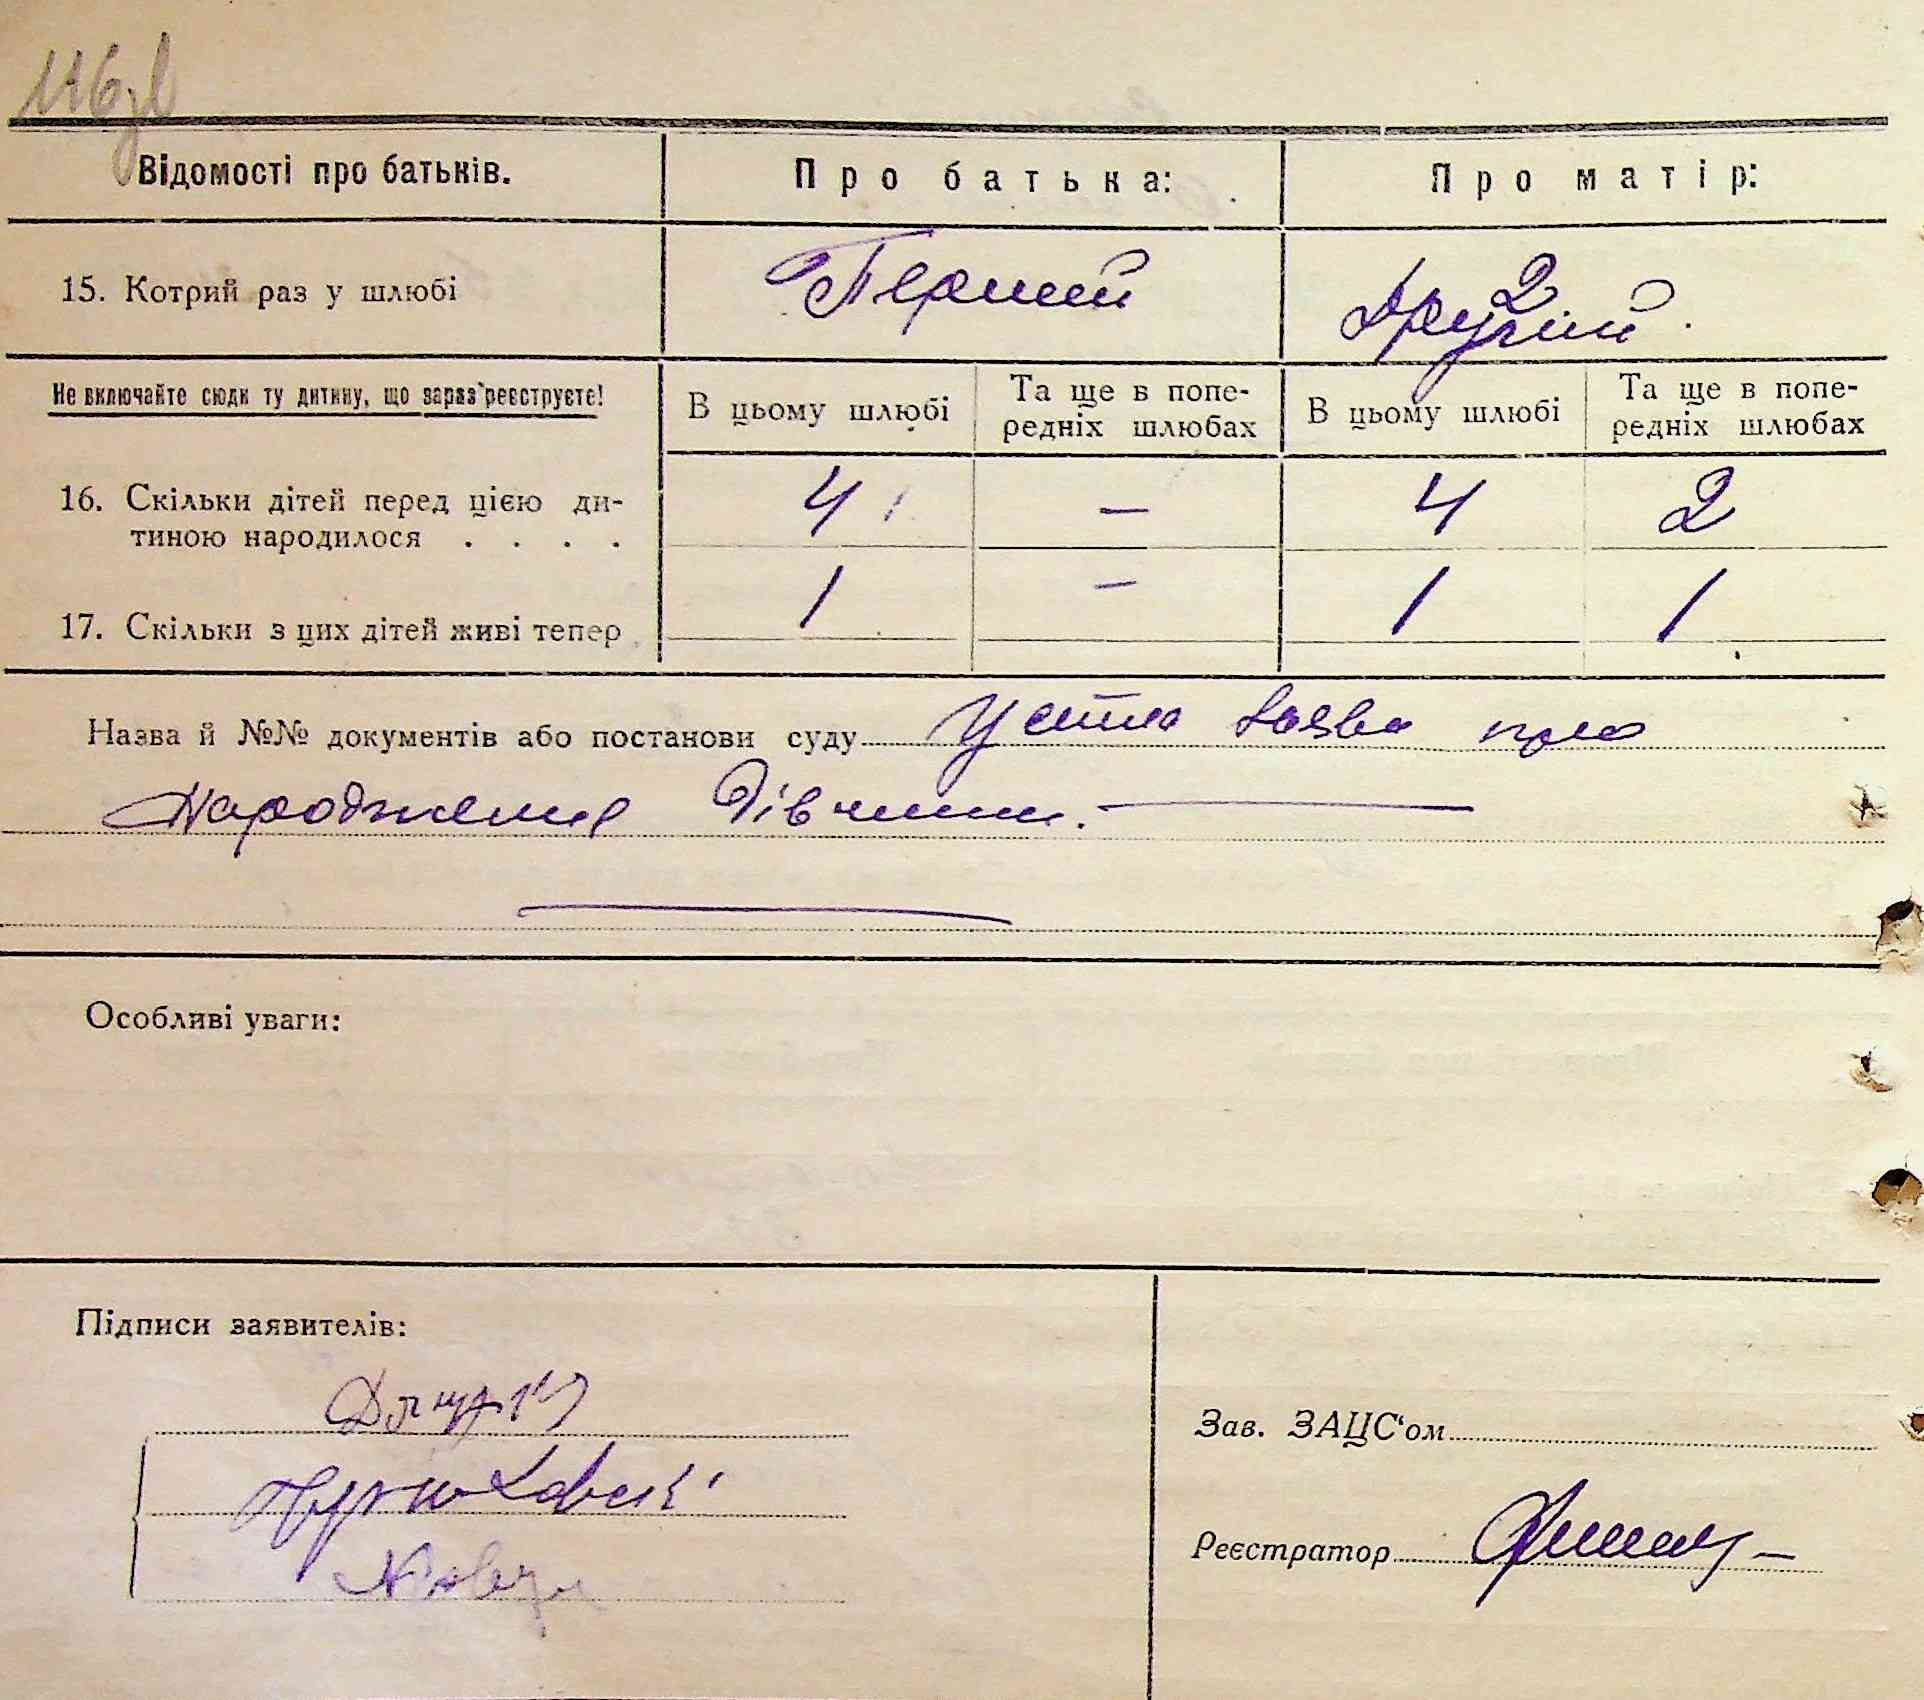 Відомості про батьків.
Про батька:
Про матір:
15. Котрий раз у шлюбі
Перший
2
Другий.
Не включайте сюди ту дитину, що зараз реєструєте!
В цьому шлюбі
Та ще в попе-
редніх шлюбах
В цьому шлюбі
Та ще в попе-
редніх шлюбах
16. Скільки дітей перед цією ди-
тиною народилося . . . .
4
—
4
2
17. Скільки з цих дітей живі тепер
1
—
1
1
Назва й №№ документів або постанови суду Устна заява про
народження дівчини. —
Особливі уваги:
Підписи заявителів:
Зав. ЗАЦС‘ом
Реєстратор